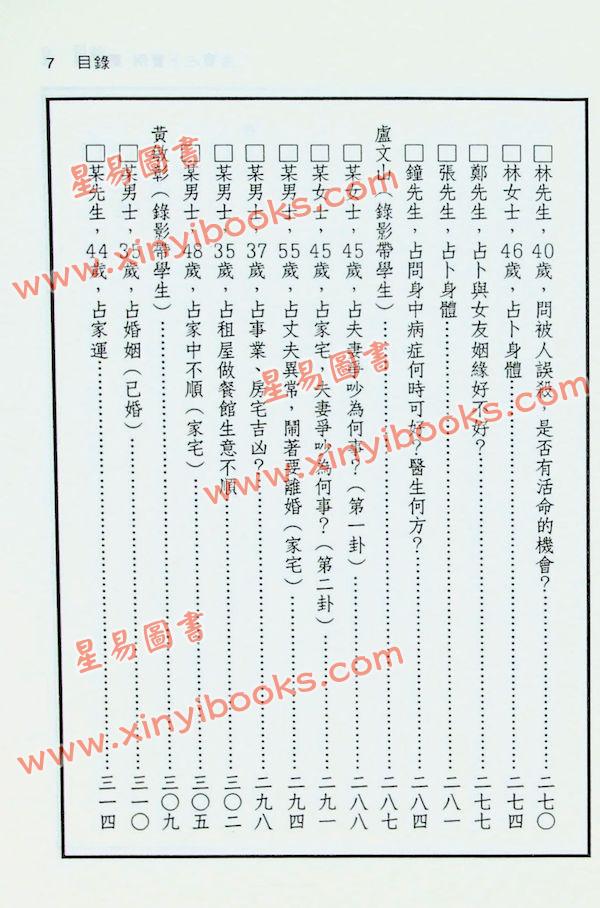 7 目錄
□林先生，40歲，問被人誤殺，是否有活命的機會？……二七〇
□林女士，46歲，占卜身體……二七四
□鄭先生，占卜與女友姻緣好不好？……二七七
□張先生，占卜身體……二八一
□鐘先生，占問身中病症何時可好？醫生何方？……二八四
盧文山（錄影帶學生）……二八七
□某女士，45歲，占夫妻爭吵為何事？（第一卦）……二八八
□某女士，45歲，占家宅，夫妻爭吵為何事？（第二卦）……二九一
□某男士，55歲，占丈夫異常，鬧著要離婚（家宅）……二九四
□某男士，37歲，占事業、房宅吉凶？……二九八
□某男士，35歲，占租屋做餐館生意不順……三〇二
□某男士，48歲，占家中不順（家宅）……三〇五
黃啟彰（錄影帶學生）……三〇九
□某男士，35歲，占婚姻（已婚）……三一〇
□某先生，44歲，占家運……三一四
星易圖書
www.xinyibooks.com
星易圖書
www.xinyibooks.com
星易圖書
www.xinyibooks.com